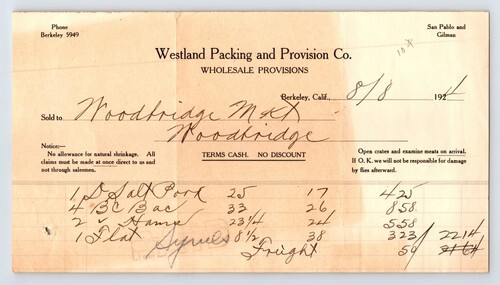 Phone
Berkeley 5949
San Pablo and
Gilman
Westland Packing and Provision Co.
WHOLESALE PROVISIONS
Berkeley, Calif., 8/8 1924
Sold to Woodbridge Mkt
Woodbridge
Notice:—
No allowance for natural shrinkage. All
claims must be made at once direct to us and
not through salesmen.
TERMS CASH. NO DISCOUNT
Open crates and examine meats on arrival.
If O.K. we will not be responsible for damage
by flies afterward.
1 D Salt Pork 25 17 425
4 BC Bac 33 26 858
2 " Hams 23 1/4 24 558
1 Flat 8 1/2 38 323
Freight 50 2214